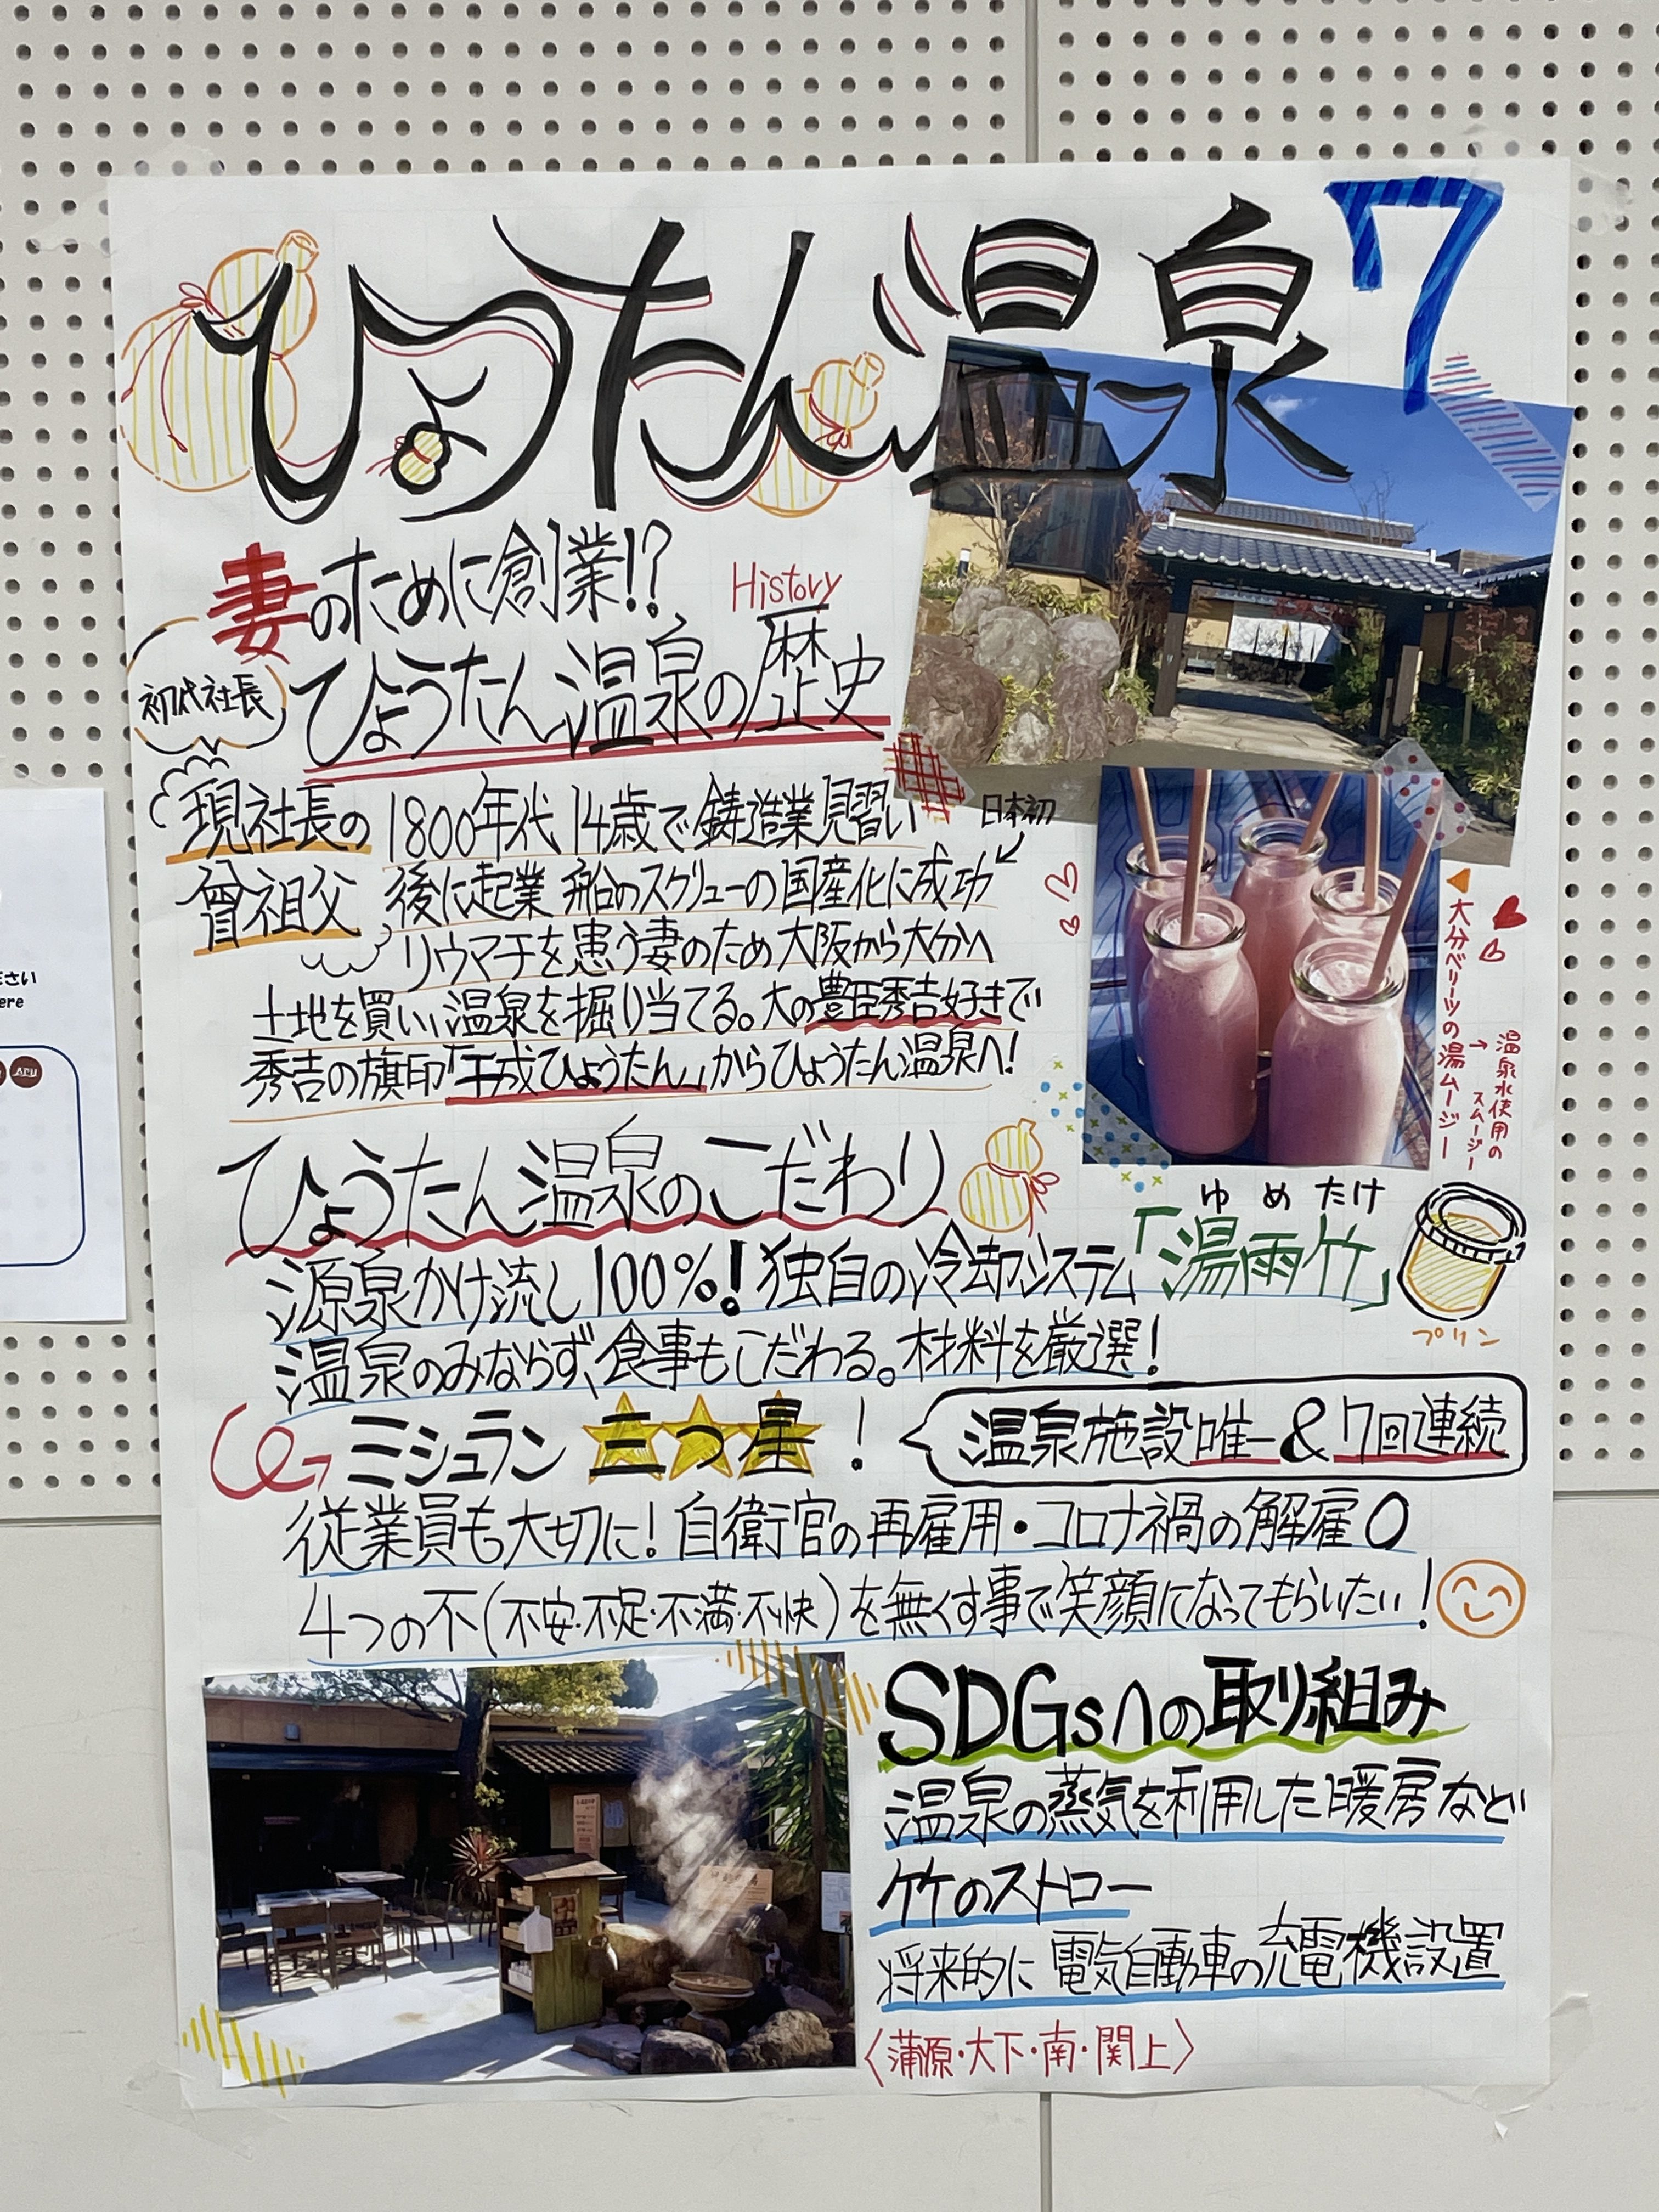 ひょうたん温泉
7
妻のために創業!?
History
ひょうたん温泉の歴史
初代社長
現社長の
曾祖父
1800年代 14歳で鋳造業見習い
日本初
後に起業 船のスクリューの国産化に成功
リウマチを患う妻のため大阪から大分へ
土地を買い、温泉を掘り当てる。大の豊臣秀吉好きで
秀吉の旗印「千成ひょうたん」からひょうたん温泉へ!
大分ベリーツの湯ムージー
→温泉水使用の
スムージー
ひょうたん温泉のこだわり
ゆめたけ
源泉かけ流し100%!独自の冷却システム「湯雨竹」
プリン
温泉のみならず、食事もこだわる。材料を厳選!
ミシュラン三つ星!
温泉施設唯一&7回連続
従業員も大切に!自衛官の再雇用・コロナ禍の解雇0
4つの不(不安・不足・不満・不快)を無くす事で笑顔になってもらいたい!
SDGsへの取り組み
温泉の蒸気を利用した暖房など
竹のストロー
将来的に電気自動車の充電機設置
〈蒲原・大下・南・関上〉
ださい
ere